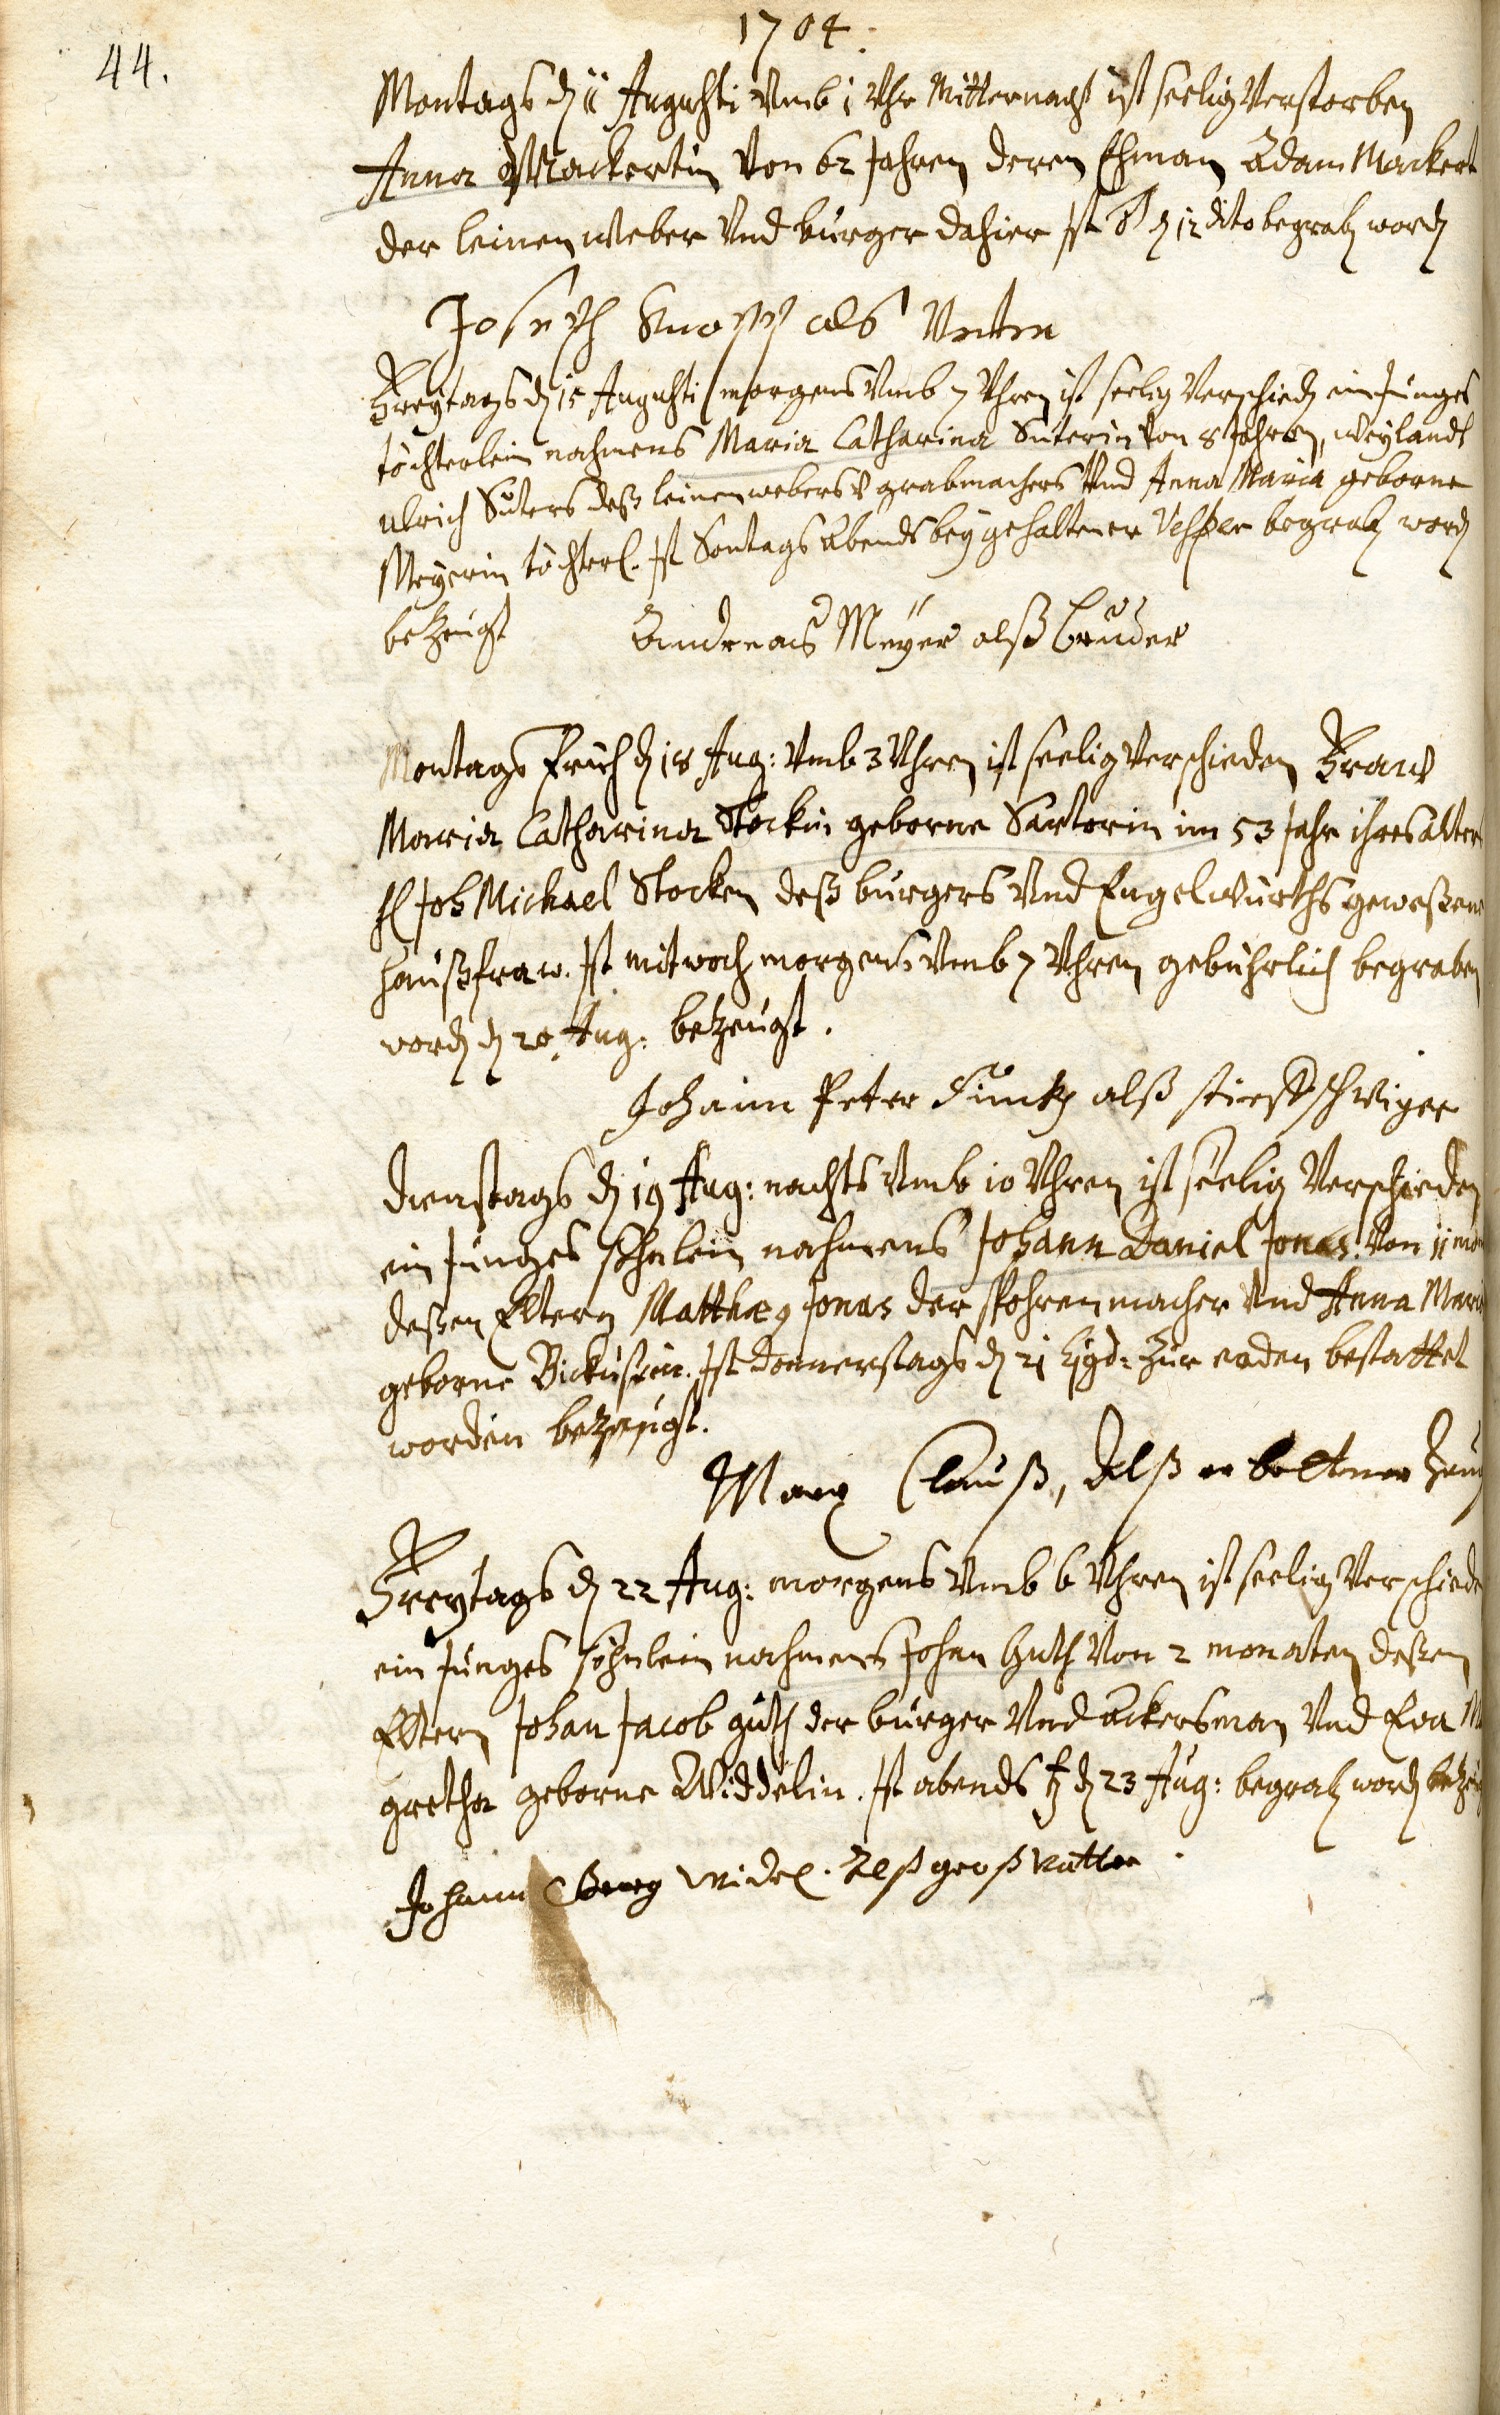 1704.
44.
Montags d 11 Augusti Vmb 1 Vhr Mitternacht ist seelig Verstorben
Anna Mackertin Von 62 Jahren deren Ehman Adam Mackert
der leinenweber Vnd burger dahier ist d 12 dito begrab word
Joseph als
Freytags d 15 Augusti morgens Vmb 7 Vhren ist seelig Verschied ein Junges
töchterlein nahmens Maria Catharina Suterin Von 8 Jahren, Weylandt
Ulrich Suters deß leinenwebers v grabmachers Vnd Anna Maria geborne
Meyerin töchterl. Ist Sontags Abends bey gehaltener Vesper begrab word
betzeugt Andreas Meyer alß bruder
Montags Früh d 18 Aug: Vmb 3 Vhren ist seelig Verschieden Fraw
Maria Catharina Stockin geborne Sartorin im 53 Jahr ihres alter
H Joh Michael Stocken deß burgers Vnd Engelwürths geweßene
haußfraw. Ist mitwoch morgens Vmb 7 Vhren gebührlich begraben
word d 20 Aug: betzeugt.
Johann Peter alß
dienstags d 19 Aug: nachts Vmb 10 Vhren ist seelig Verschieden
ein Junges söhnlein nahmens Johann Daniel Jonas Von 11 mon
deßen Eltern Matthæ9 Jonas der spohrenmacher Vnd Anna Mari
geborne Ist donnerstags d 21 zur erden bestattet
worden betzeugt.
Marx Clauß, Alß erbettner Zeug
Freytags d 22 Aug: morgens Vmb 6 Vhren ist seelig Verschiede
ein Junges söhnlein nahmens Johan Guth Von 2 monaten deßen
Eltern Johan Jacob guth der burger Vnd Ackersman Vnd Eva M
gretha geborne Widdelin. Ist abends d 23 Aug: begrab word betzeu
Johann Georg Widel. Alß groß Vatter.